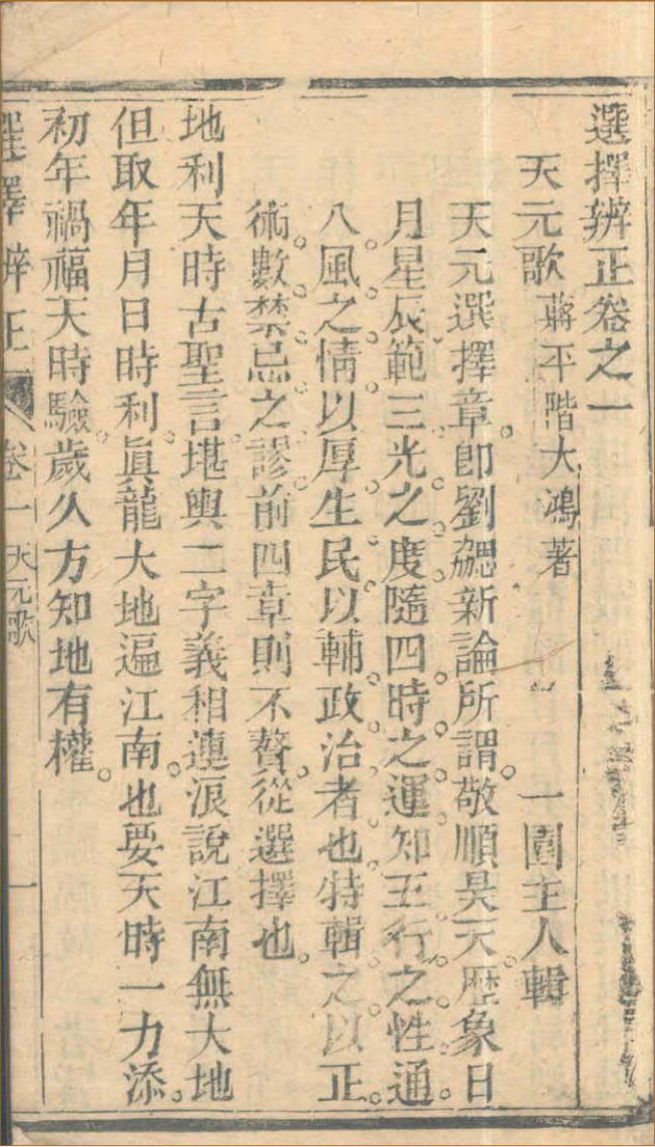 選擇辨正卷之一
天元歌 蔣平階大鴻著 一園主人輯
天元選擇章即劉勰新論所謂敬順昊天歴象日
月星辰範三光之度隨四時之運知五行之性通
八風之情以厚生民以輔政治者也特輯之以正
術數禁忌之謬前四章則不贅從選擇也
地利天時古聖言堪輿二字義相連浪說江南無大地
但取年月日時利眞龍大地遍江南也要天時一力添
初年禍福天時驗歲久方知地有權
選擇辨正 卷一 天元歌 一